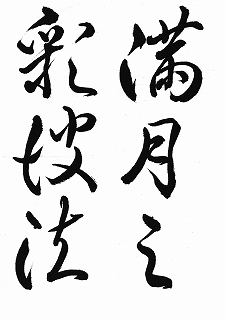 満月之
彩法